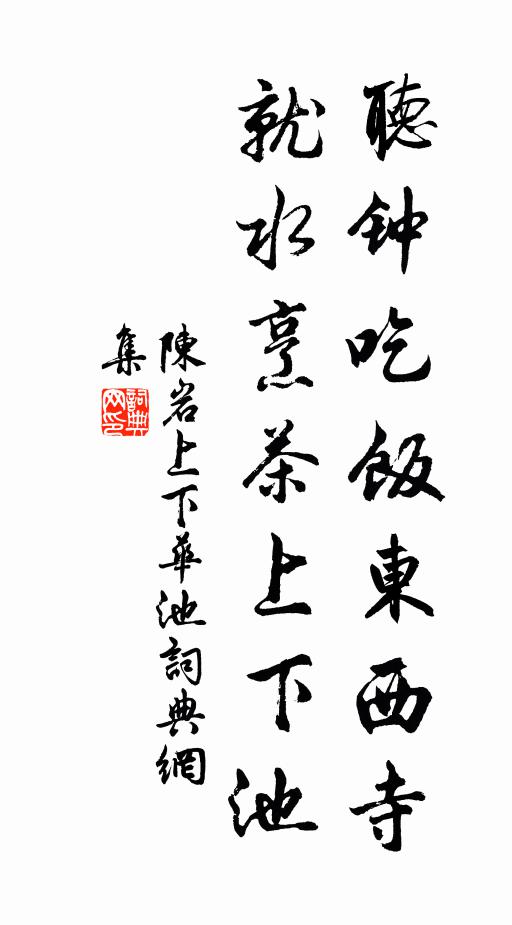 聽钟吃飯東西寺
就水烹茶上下池
陳岩上下華池詞典網
集
詞典
网印